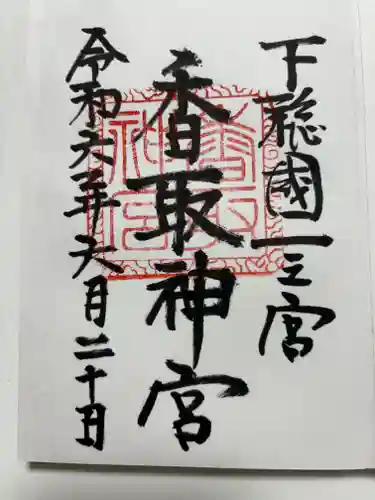 下総國一之宮
香取神宮
令和六年六月二十日